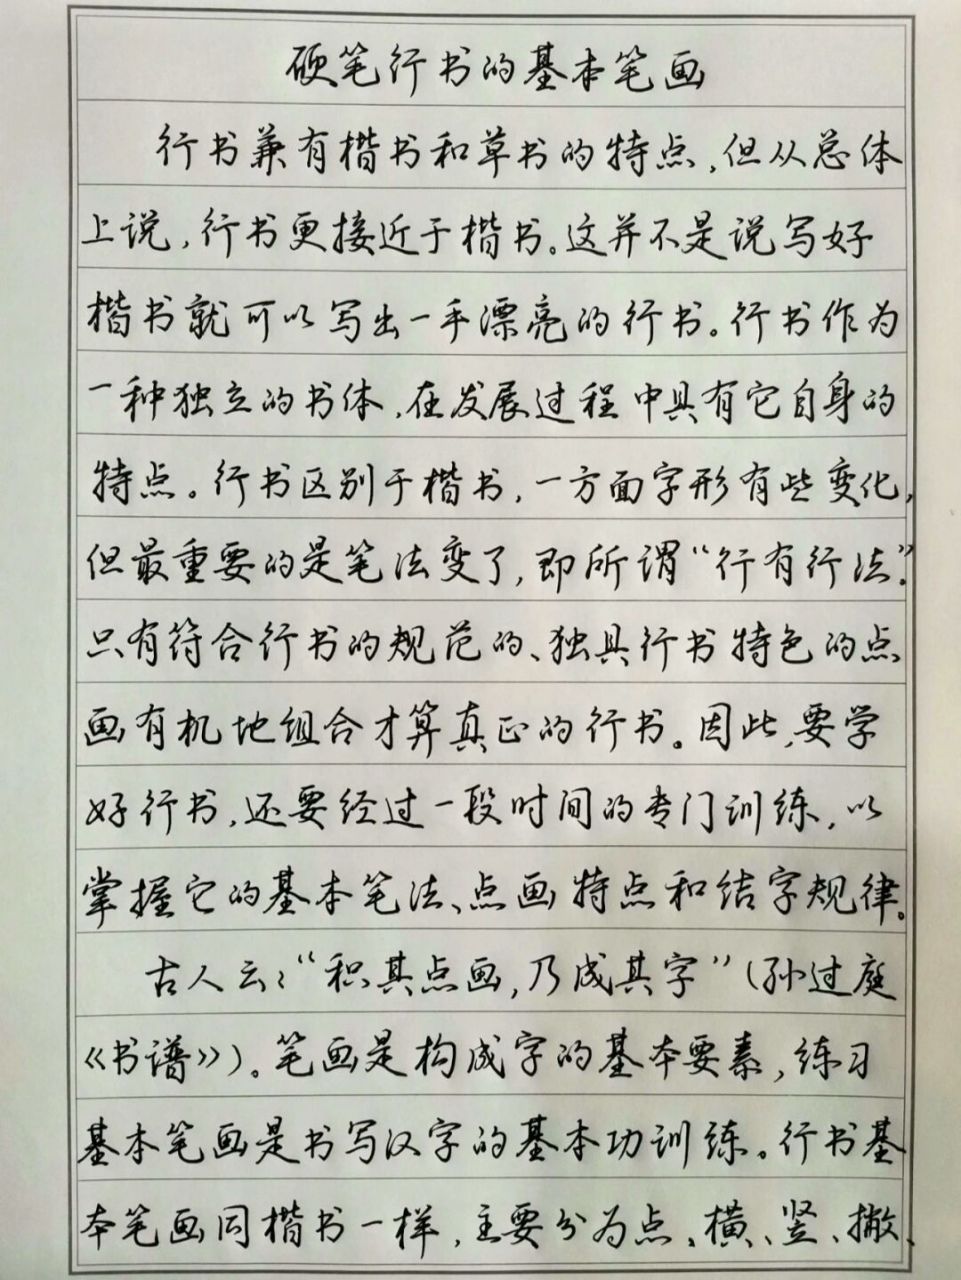 硬笔行书的基本笔画
行书兼有楷书和草书的特点,但从总体
上说,行书更接近于楷书。这并不是说写好
楷书就可以写出一手漂亮的行书。行书作为
一种独立的书体,在发展过程中具有它自身的
特点。行书区别于楷书,一方面字形有些变化,
但最重要的是笔法变了,即所谓“行有行法”。
只有符合行书的规范的、独具行书特色的点
画有机地组合才算真正的行书。因此,要学
好行书,还要经过一段时间的专门训练,以
掌握它的基本笔法、点画特点和结字规律。
古人云:“积其点画,乃成其字”(孙过庭
《书谱》)。笔画是构成字的基本要素,练习
基本笔画是书写汉字的基本功训练。行书基
本笔画同楷书一样,主要分为点、横、竖、撇、